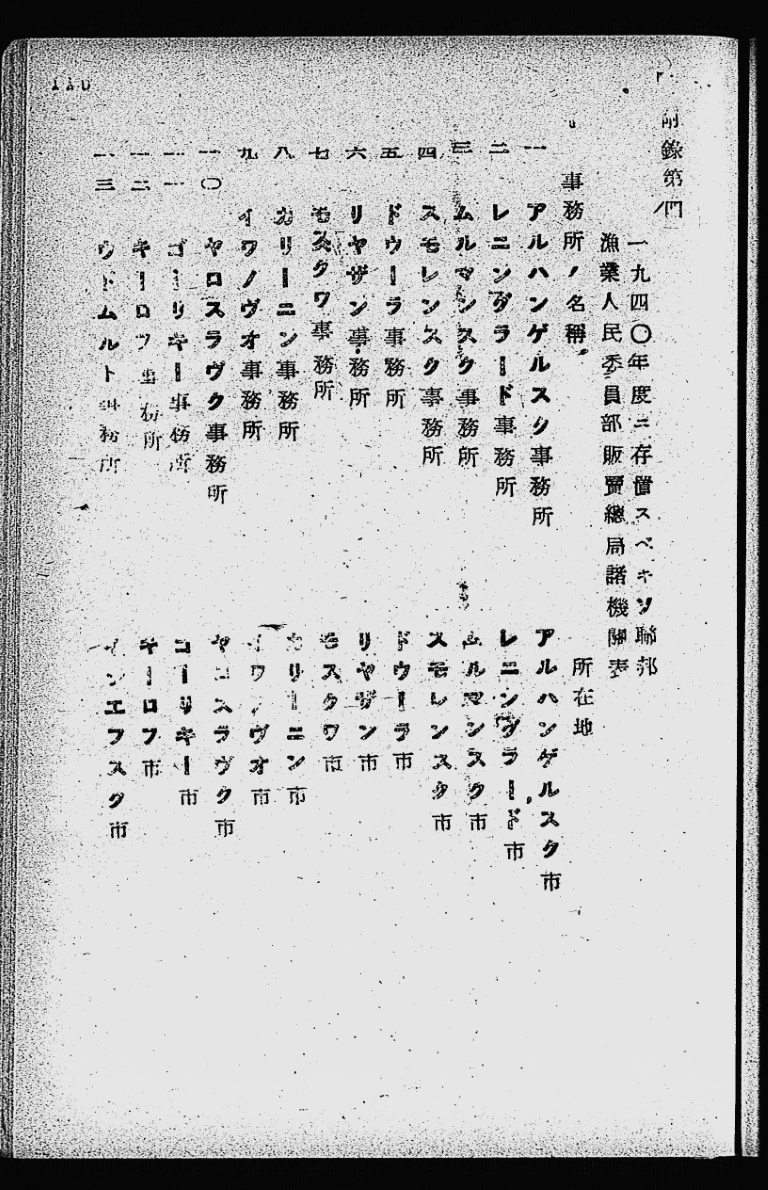 附錄第四
一九四〇年度ニ存置スベキソ聯邦
漁業人民委員部販賣總局諸機關表
事務所ノ名稱 所在地
一 アルハンゲルスク事務所 アルハンゲルスク市
二 レニングラード事務所 レニングラード市
三 ムルマンスク事務所 ムルマンスク市
四 スモレンスク事務所 スモレンスク市
五 ドウーラ事務所 ドウーラ市
六 リヤザン事務所 リヤザン市
七 モスクワ事務所 モスクワ市
八 カリーニン事務所 カリーニン市
九 イワノヴオ事務所 イワノヴオ市
一〇 ヤロスラヴク事務所 ヤロスラヴク市
一一 ゴーリキー事務所 ゴーリキー市
一二 キーロフ事務所 キーロフ市
一三 ウドムルト事務所 インエフスク市